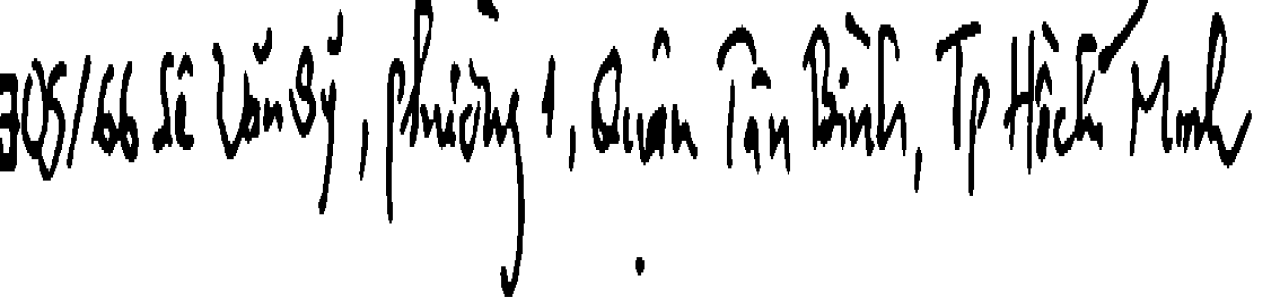 305/66 Lê Văn Sỹ, phường 1, Quận Tân Bình, Tp Hồ Chí Minh